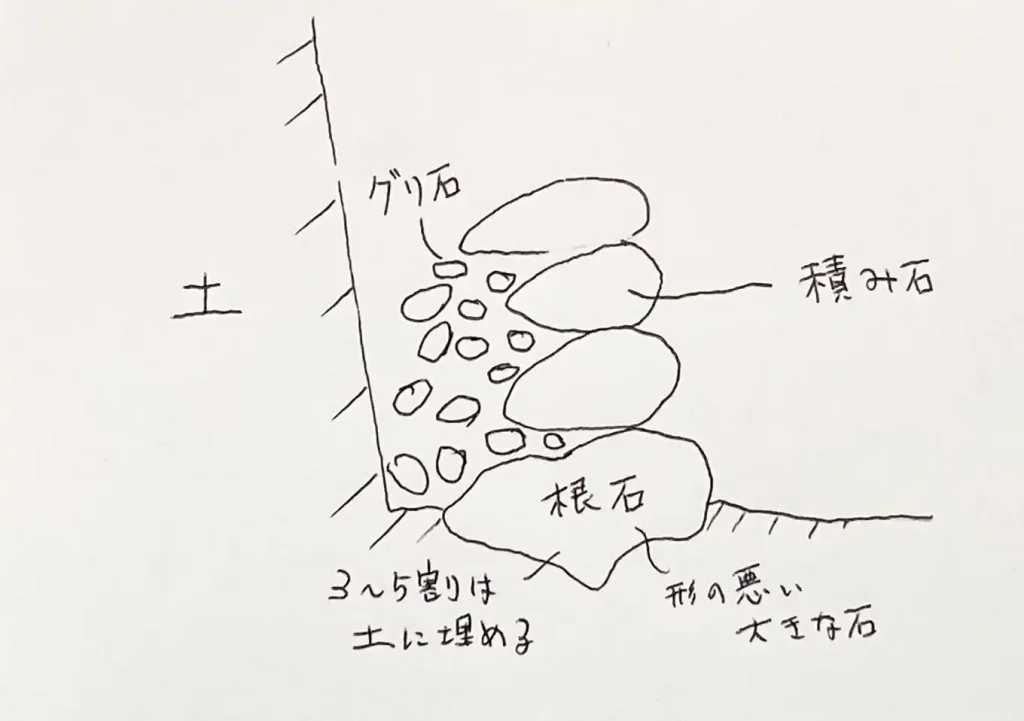 グリ石
土
積み石
根石
3~5割は
土に埋める
形の悪い
大きな石